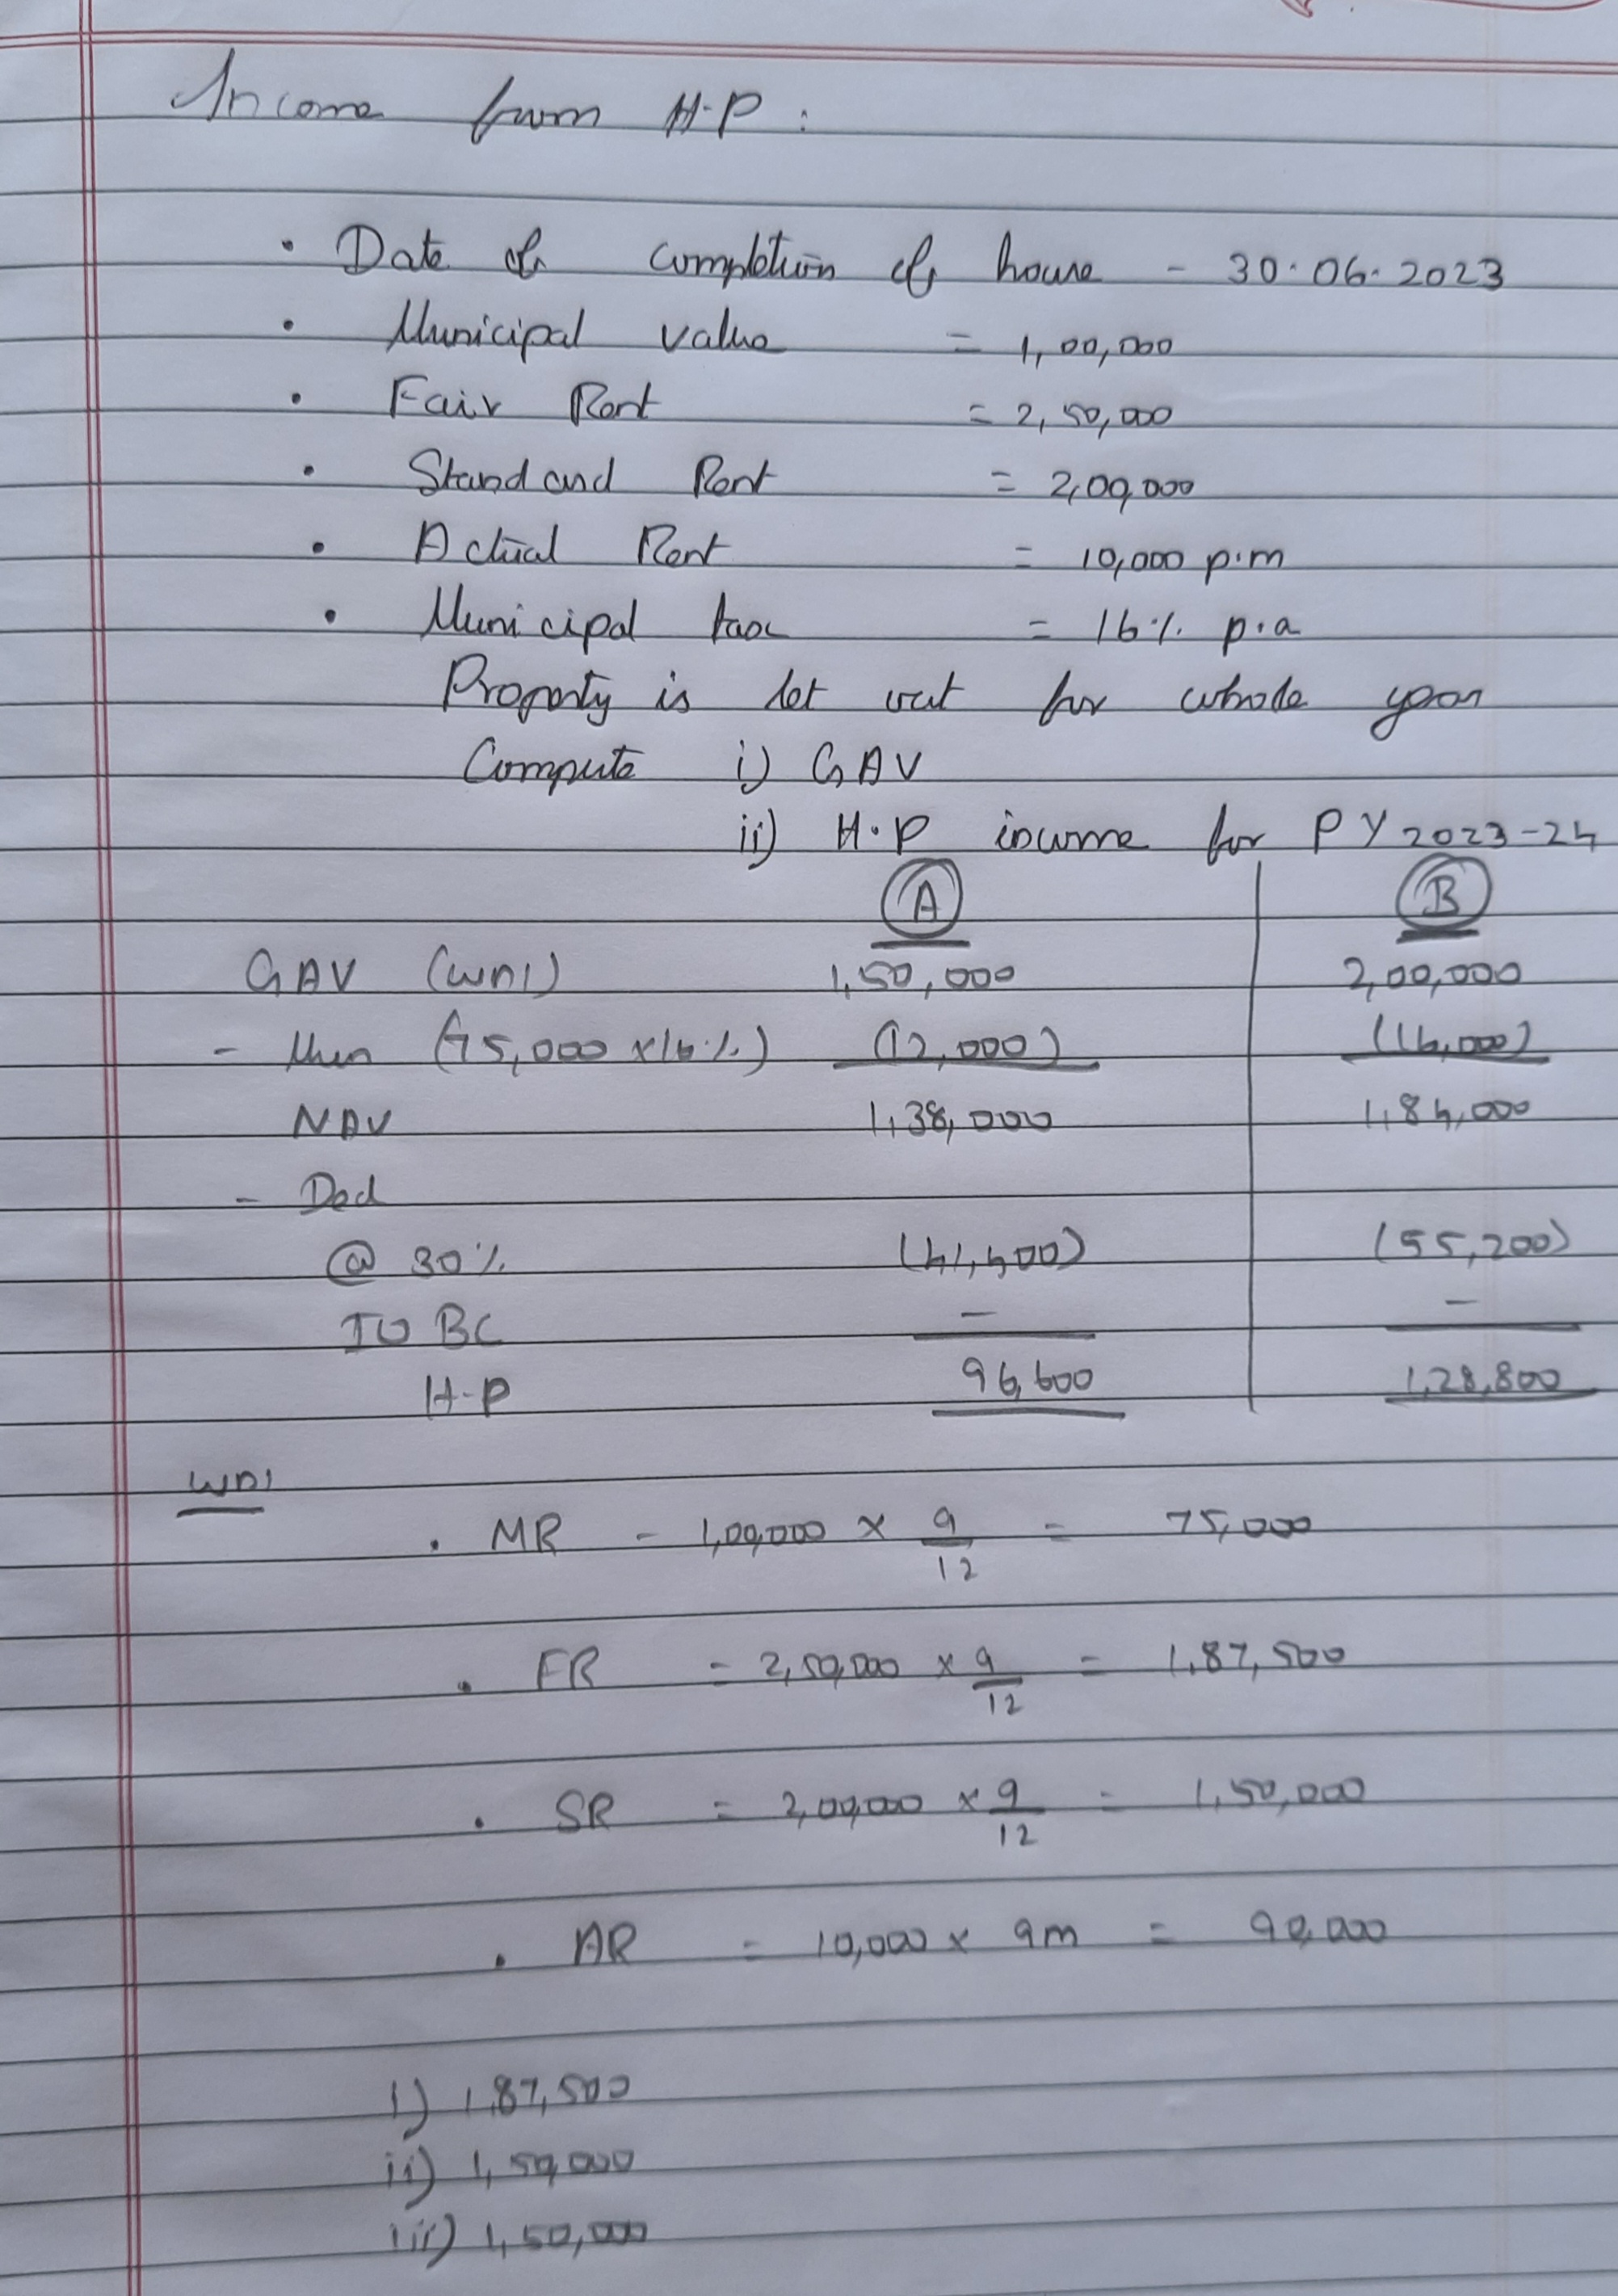 Income from H.P :
• Date of completion of house - 30.06.2023
• Municipal value = 1,00,000
• Fair Rent = 2,50,000
• Standard Rent = 2,00,000
• Actual Rent = 10,000 p.m
• Municipal tax = 16% p.a
Property is let out for whole year
Compute i) GAV
ii) H.P income for PY 2023-24
A B
GAV (WN1) 1,50,000 2,00,000
- Mun (75,000 x 16%) (12,000) (16,000)
NAV 1,38,000 1,84,000
- Ded
@ 30% (41,400) (55,200)
IOBC - -
H.P 96,600 1,28,800
WN1
• MR - 1,00,000 x 9/12 = 75,000
• FR = 2,50,000 x 9/12 = 1,87,500
• SR = 2,00,000 x 9/12 = 1,50,000
• AR = 10,000 x 9m = 90,000
i) 1,87,500
ii) 1,50,000
iii) 1,50,000